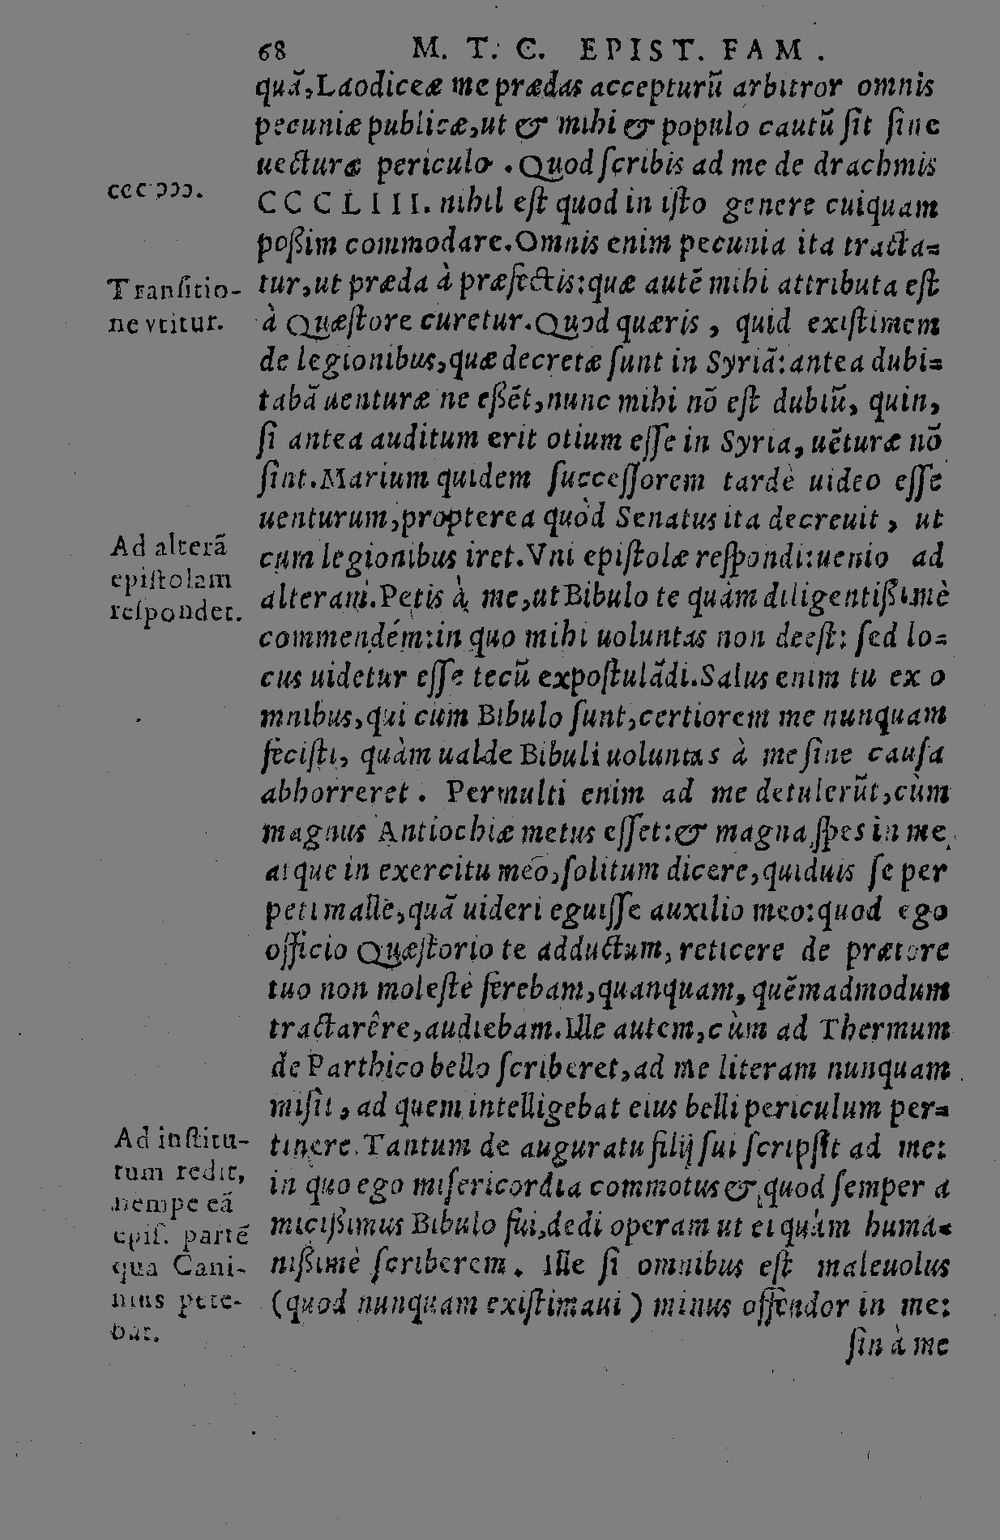 68 M. T. C. EPIST. FAM.
quã, Laodiceæ me prædas accepturũ arbitror omnis
pecuniæ publicæ, ut & mihi & populo cautũ ſit ſine
uecturæ periculo. Quod ſcribis ad me de drachmis
ccc ↄↄↄ.
CCCLIII. nihil eſt quod in iſto genere cuiquam
poßim commodare. Omnis enim pecunia ita tracta=
Tranſitio-
tur, ut præda à præfectis: quæ autẽ mihi attributa eſt
ne vtitur.
à Quæſtore curetur. Quod quæris, quid exiſtimem
de legionibus, quæ decretæ ſunt in Syriã: antea dubi=
tabã uenturæ ne eßẽt, nunc mihi nõ eſt dubiũ, quin,
ſi antea auditum erit otium eſſe in Syria, uẽturæ nõ
ſint. Marium quidem ſucceſſorem tardè uideo eſſe
uenturum, propterea quòd Senatus ita decreuit, ut
Ad alterã
cum legionibus iret. Vni epiſtolæ reſpondi: uenio ad
epiſtolam
alteram. Petis à me, ut Bibulo te quàm diligentißimè
reſpondet.
commendém: in quo mihi uoluntas non deeſt: ſed lo=
cus uidetur eſſe tecũ expoſtulãdi. Salus enim tu ex o
mnibus, qui cum Bibulo ſunt, certiorem me nunquam
feciſti, quàm ualde Bibuli uoluntas à me ſine cauſa
abhorreret. Permulti enim ad me detulerũt, cùm
magnus Antiochiæ metus eſſet: & magna ſpes in me
atque in exercitu meo, ſolitum dicere, quiduis ſe per
peti malle, quã uideri eguiſſe auxilio meo: quod ego
officio Quæſtorio te adductum, reticere de prætore
tuo non moleſtè ferebam, quanquam, quẽmadmodum
tractarêre, audiebam. Ille autem, cùm ad Thermum
de Parthico bello ſcriberet, ad me literam nunquam
miſit, ad quem intelligebat eius belli periculum per=
Ad inſtitu-
tinere. Tantum de auguratu filij ſui ſcripſit ad me:
tum redit,
in quo ego miſericordia commotus &, quod ſemper a
nempe eã
micißimus Bibulo fui, dedi operam ut ei quàm huma=
epiſ. partẽ
qua Cani-
nißimè ſcriberem. Ille ſi omnibus eſt maleuolus
nius pete-
(quod nunquam exiſtimaui) minus offendor in me:
bat.
ſin à me